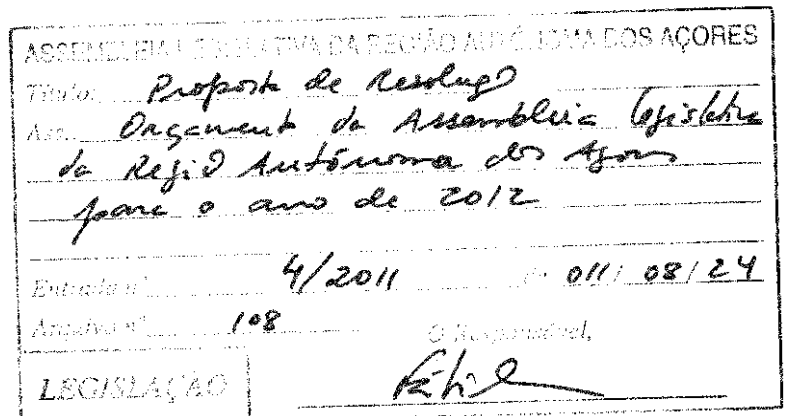 ASSEMBLEIA LEGISLATIVA DA REGIÃO AUTÓNOMA DOS AÇORES
Título: Proposta de Resolução
Ass.: Orçamento da Assembleia Legislativa
da Região Autónoma dos Açores
para o ano de 2012
Entrada nº 4/2011 de 011/08/24
Arquivo nº 108
O Responsável,
LEGISLAÇÃO